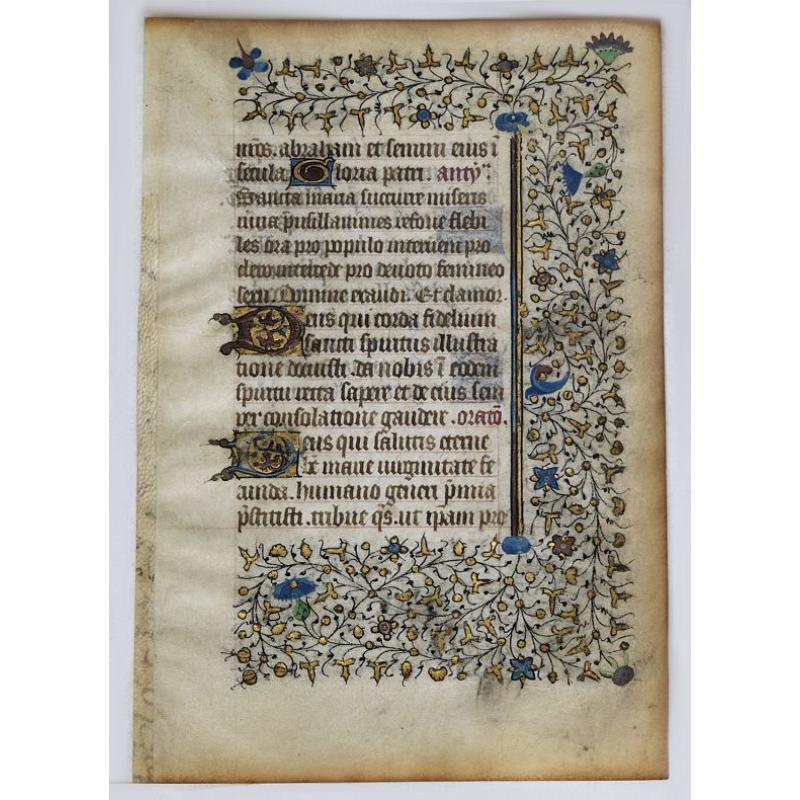 nr̄os. abraham et semini eius ī
secula Gloria patri. anty̅.
Sancta maria succurre miseris
iuua pusillanimes refoue flebi
les ora pro populo interueni pro
clero intercede pro deuoto femineo
sexu. Domine exaudi. Et clamor.
Deus qui corda fidelium
sancti spiritus illustra
tione docuisti. da nobis ī eodem
spiritu recta sapere et de eius sem
per consolatione gaudere. oratō.
Deus qui salutis eterne
bē̄ marie uirginitate fe
cunda. humano generi p̄mia
p̄stitisti. tribue q̄s. ut ipam pro